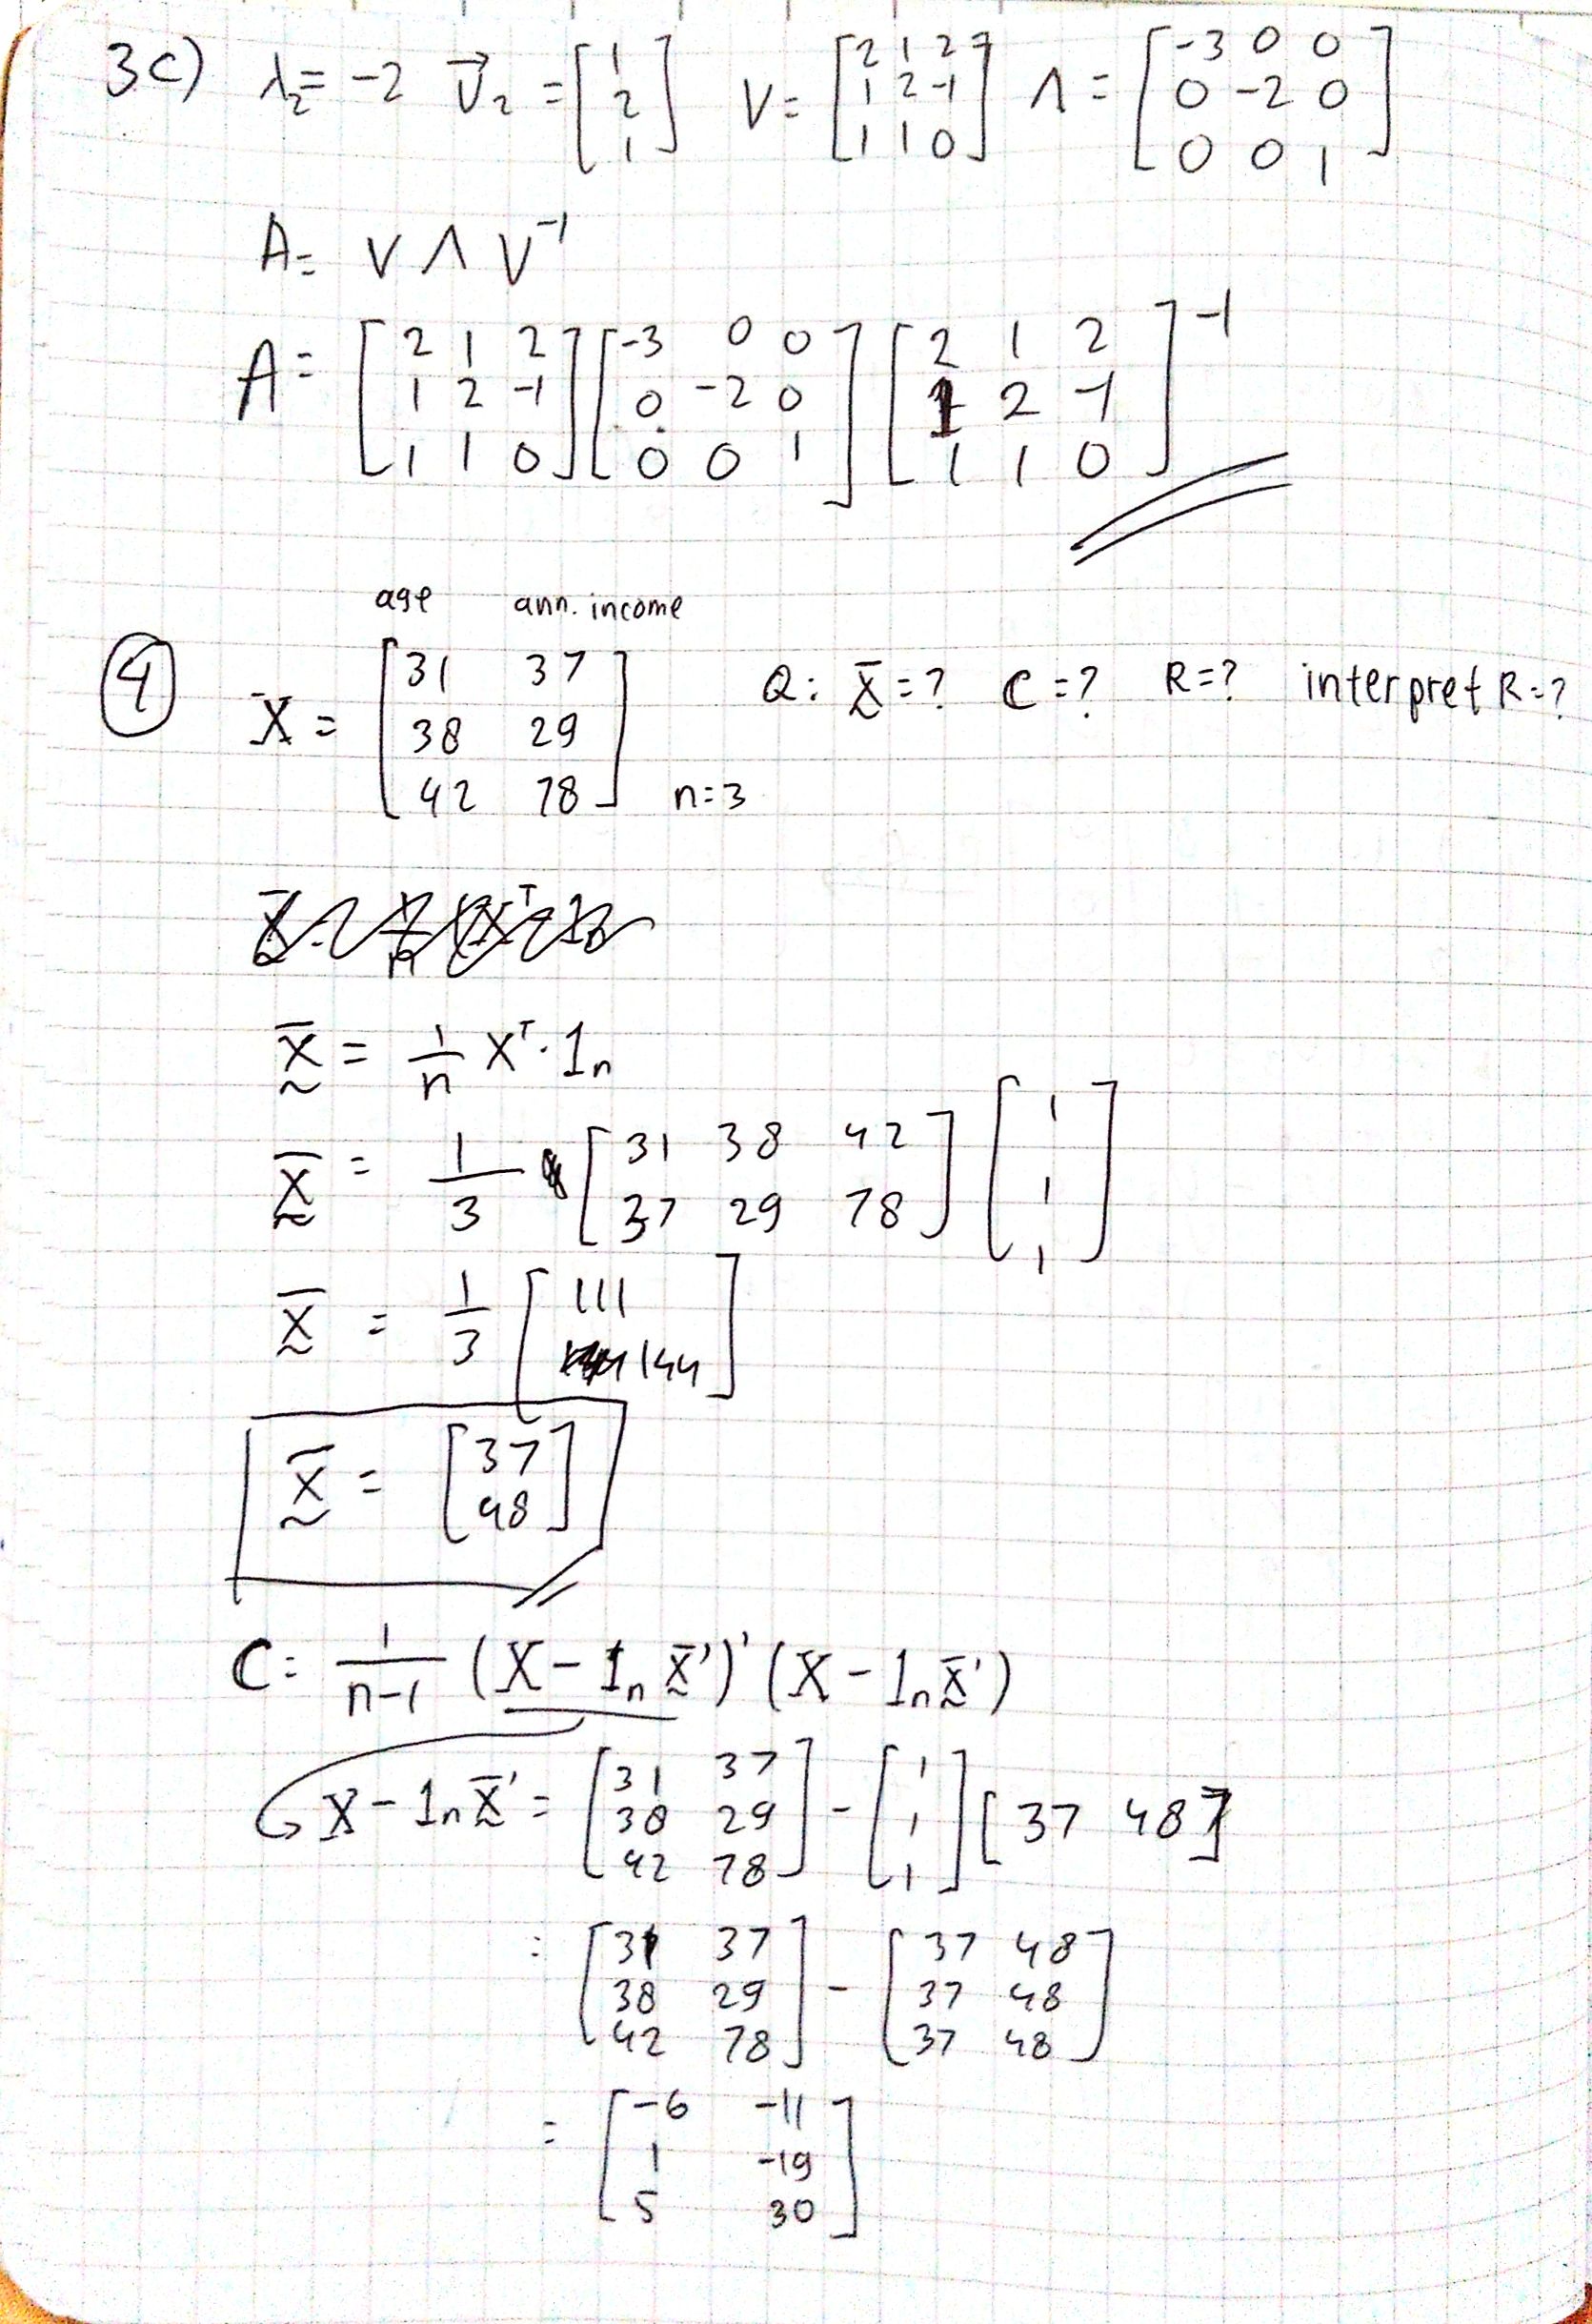 3c) λ₂= -2 v⃗₂ = [1 2 1] V= [2 1 2 1 2 -1 1 1 0] Λ = [-3 0 0 0 -2 0 0 0 1]
A= V Λ V⁻¹
A= [2 1 2 1 2 -1 1 1 0] [-3 0 0 0 -2 0 0 0 1] [2 1 2 1 2 -1 1 1 0]⁻¹
age ann. income
④ X = [31 37 38 29 42 78] n=3 Q: x̄=? C=? R=? interpret R=?
x̄ = 1/n Xᵀ·1ₙ
x̄ = 1/3 [31 38 42 37 29 78] [1 1 1]
x̄ = 1/3 [111 144]
x̄ = [37 48]
C= 1/n-1 (X - 1ₙ x̄')' (X - 1ₙ x̄')
X - 1ₙ x̄' = [31 37 38 29 42 78] - [1 1 1] [37 48]
= [31 37 38 29 42 78] - [37 48 37 48 37 48]
= [-6 -11 1 -19 5 30]